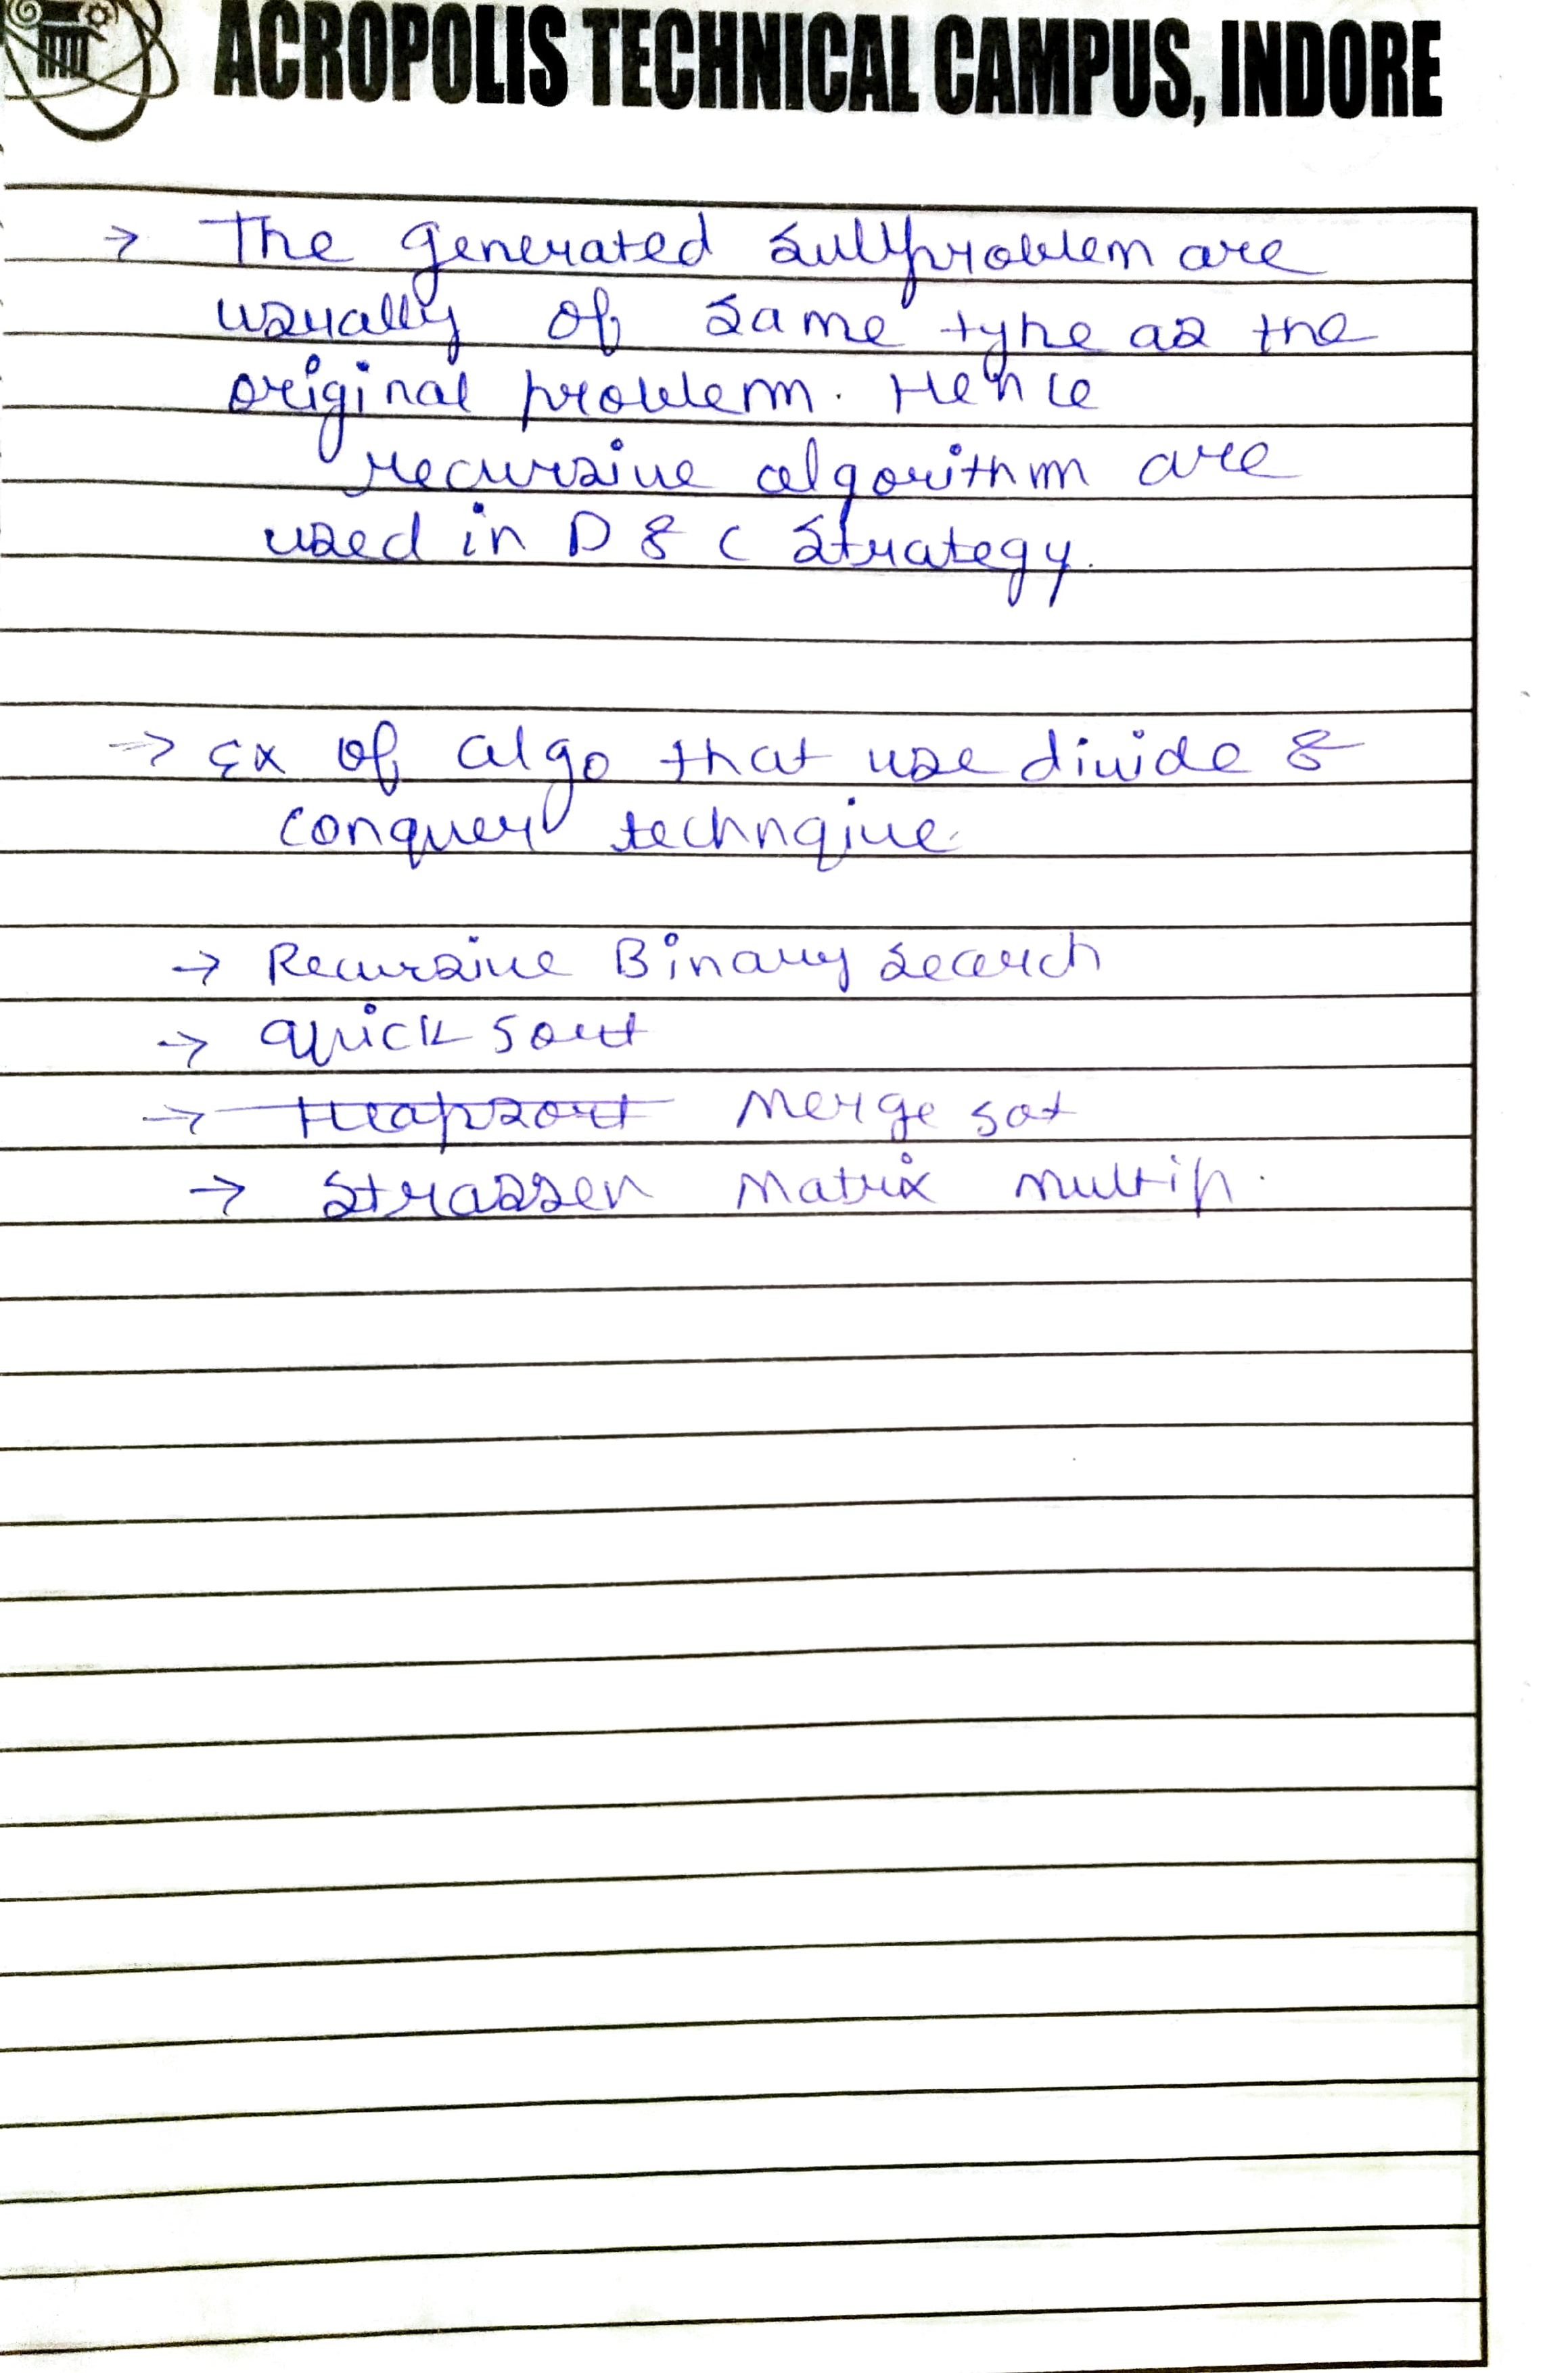 ACROPOLIS TECHNICAL CAMPUS, INDORE
→ The generated subproblem are
usually of same type as the
original problem. Hence
recursive algorithm are
used in D & C strategy.
⇒ Ex of algo that use divide &
conquer technqiue.
→ Recursive Binary search
→ Quick sort
→ Heapsort Merge sot
→ Strassen Matrix multip.